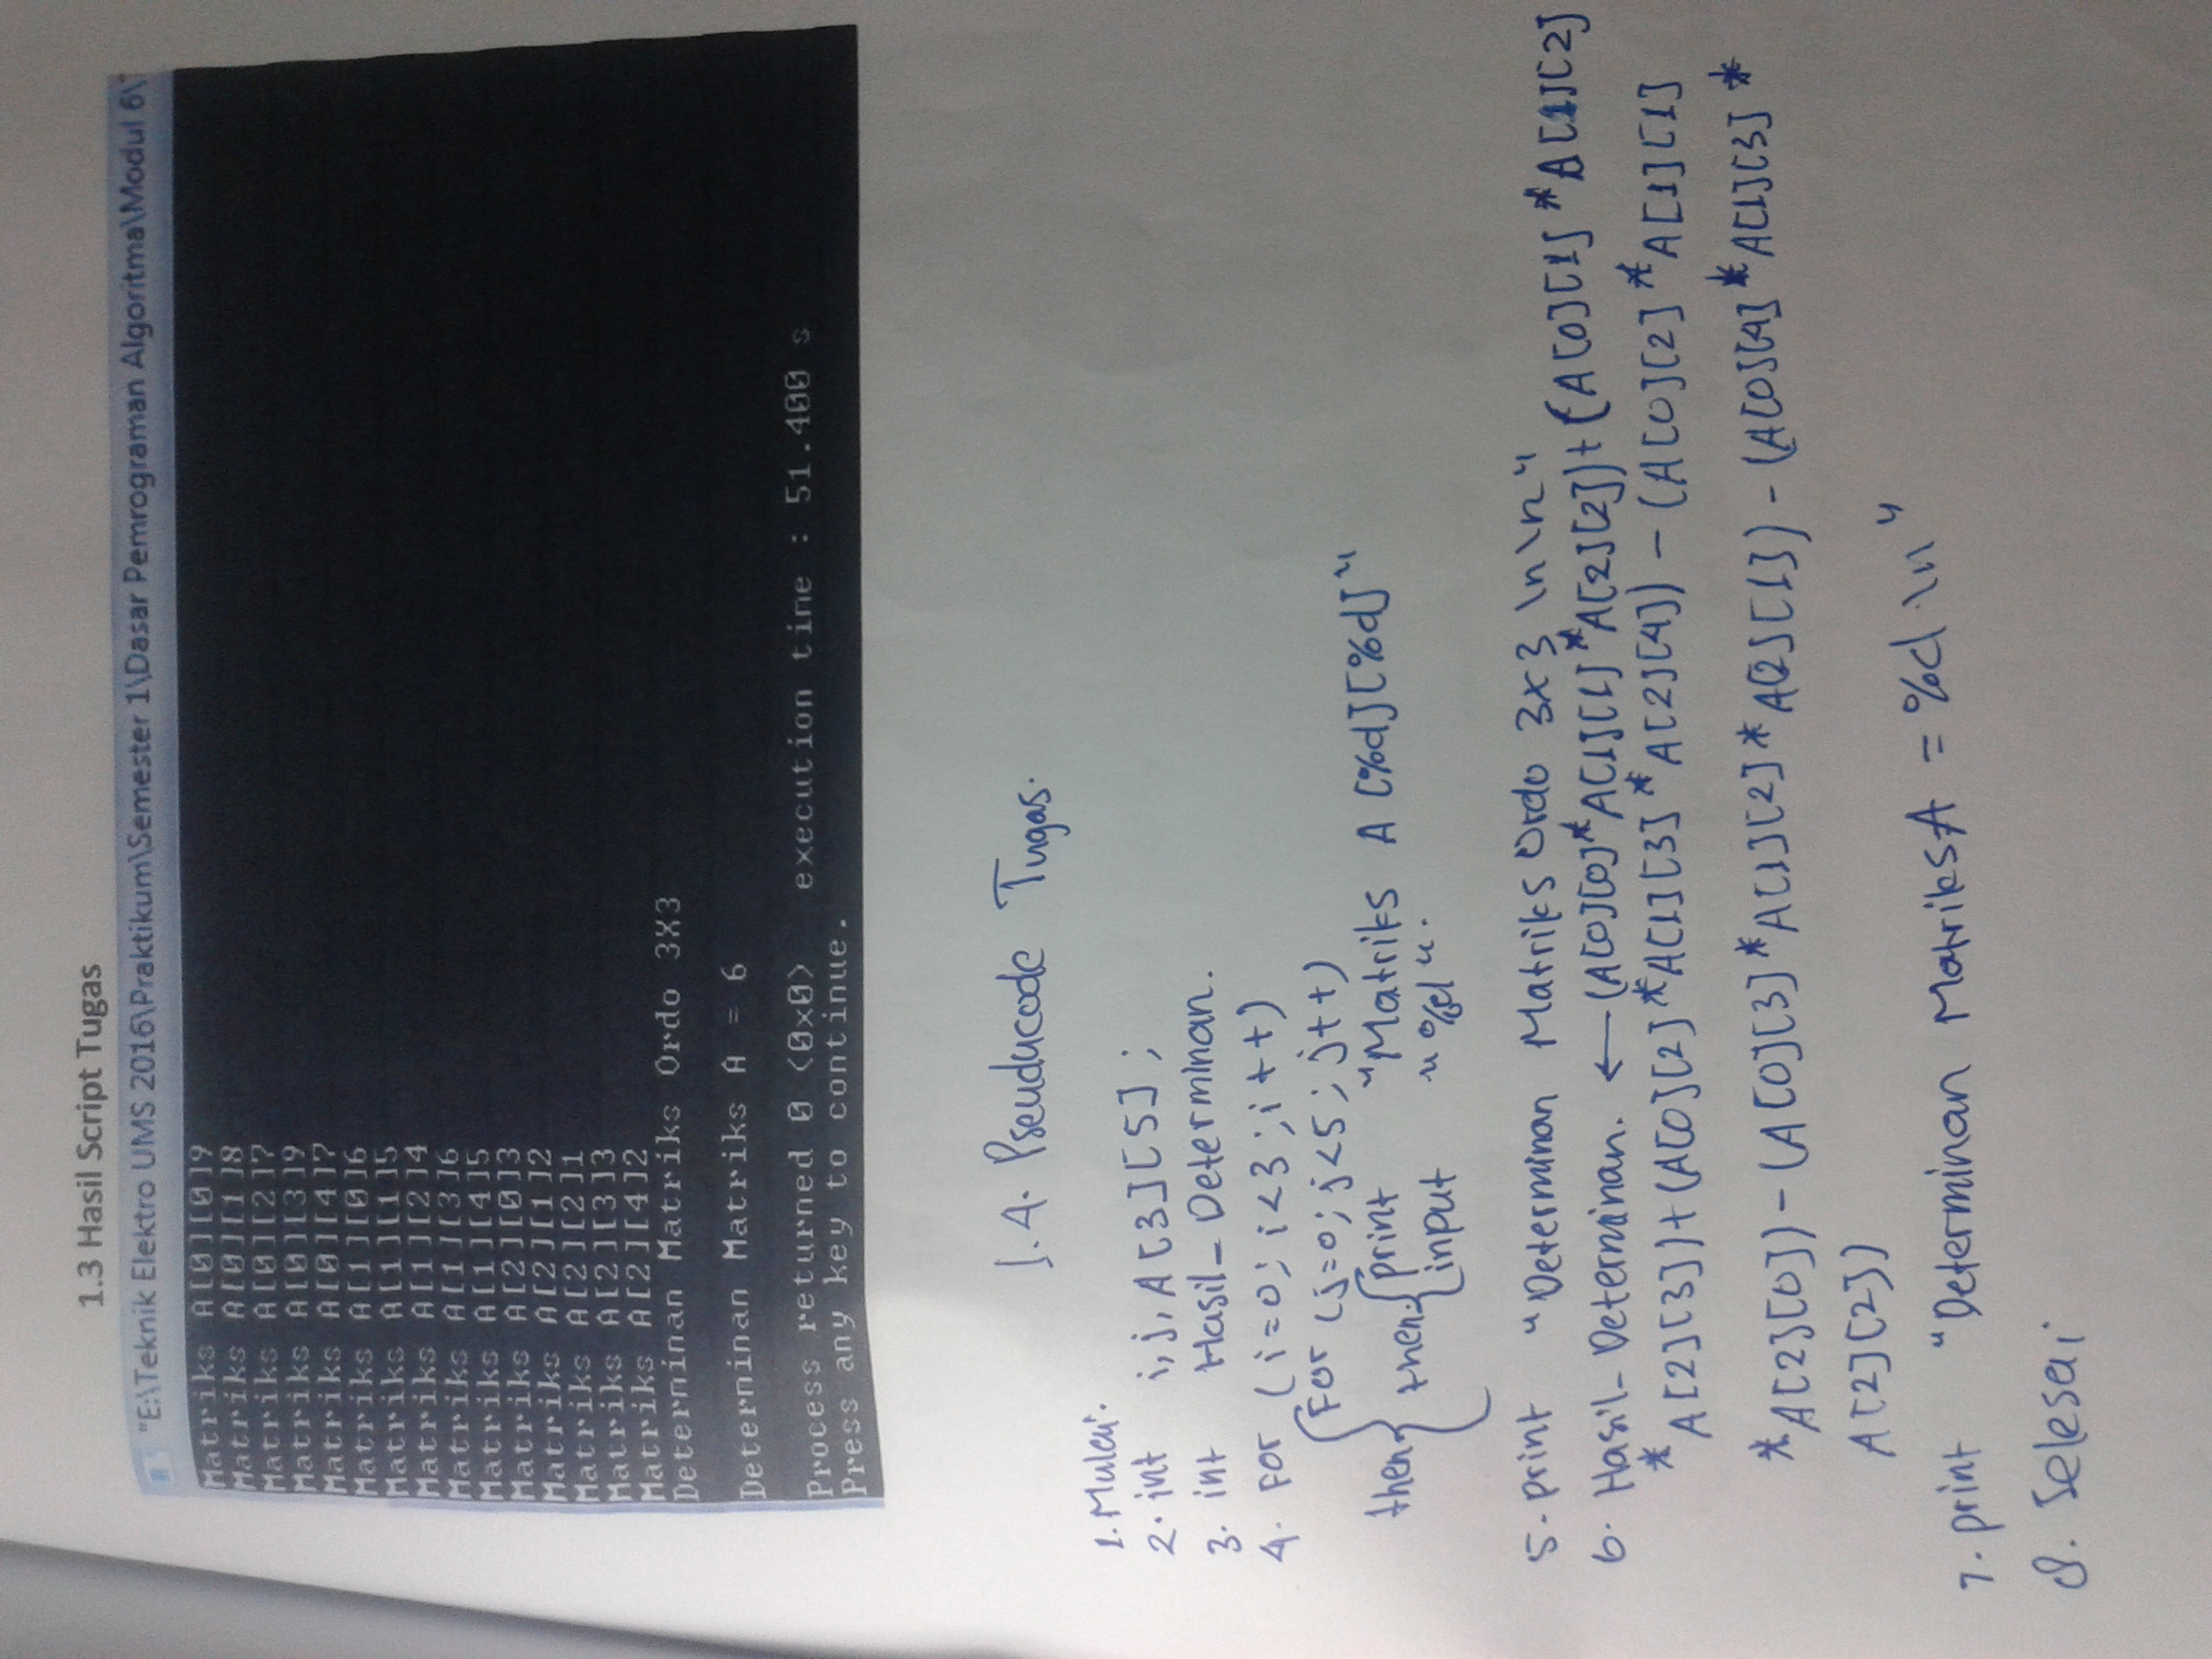 1.3 Hasil Script Tugas
"E:\Teknik Elektro UMS 2016\Praktikum\Semester 1\Dasar Pemrograman Algoritma\Modul 6\
Matriks A[0][0]9
Matriks A[0][1]8
Matriks A[0][2]7
Matriks A[0][3]9
Matriks A[0][4]7
Matriks A[1][0]6
Matriks A[1][1]5
Matriks A[1][2]4
Matriks A[1][3]6
Matriks A[1][4]5
Matriks A[2][0]3
Matriks A[2][1]2
Matriks A[2][2]1
Matriks A[2][3]3
Matriks A[2][4]2
Determinan Matriks Ordo 3X3
Determinan Matriks A = 6
Process returned 0 (0x0) execution time : 51.400 s
Press any key to continue.
1.4. Pseuducode Tugas.
1. Mulai.
2. int i, j, A[3][5];
3. int Hasil_Determinan.
4. For (i=0; i<3; i++)
For (j=0; j<5; j++)
then then print "Matriks A [%d][%d]"
input "%d".
5. print "Determinan Matriks Ordo 3x3 \n\n"
6. Hasil_Determinan. ← (A[0][0]*A[1][1]*A[2][2])+(A[0][1]*A[1][2]
*A[2][3])+(A[0][2]*A[1][3]*A[2][4]) - (A[0][2]*A[1][1]
*A[2][0]) - (A[0][3]*A[1][2]*A[2][1]) - (A[0][4]*A[1][3]*
A[2][2])
7. print "Determinan Matriks A = %d \n"
8. Selesai